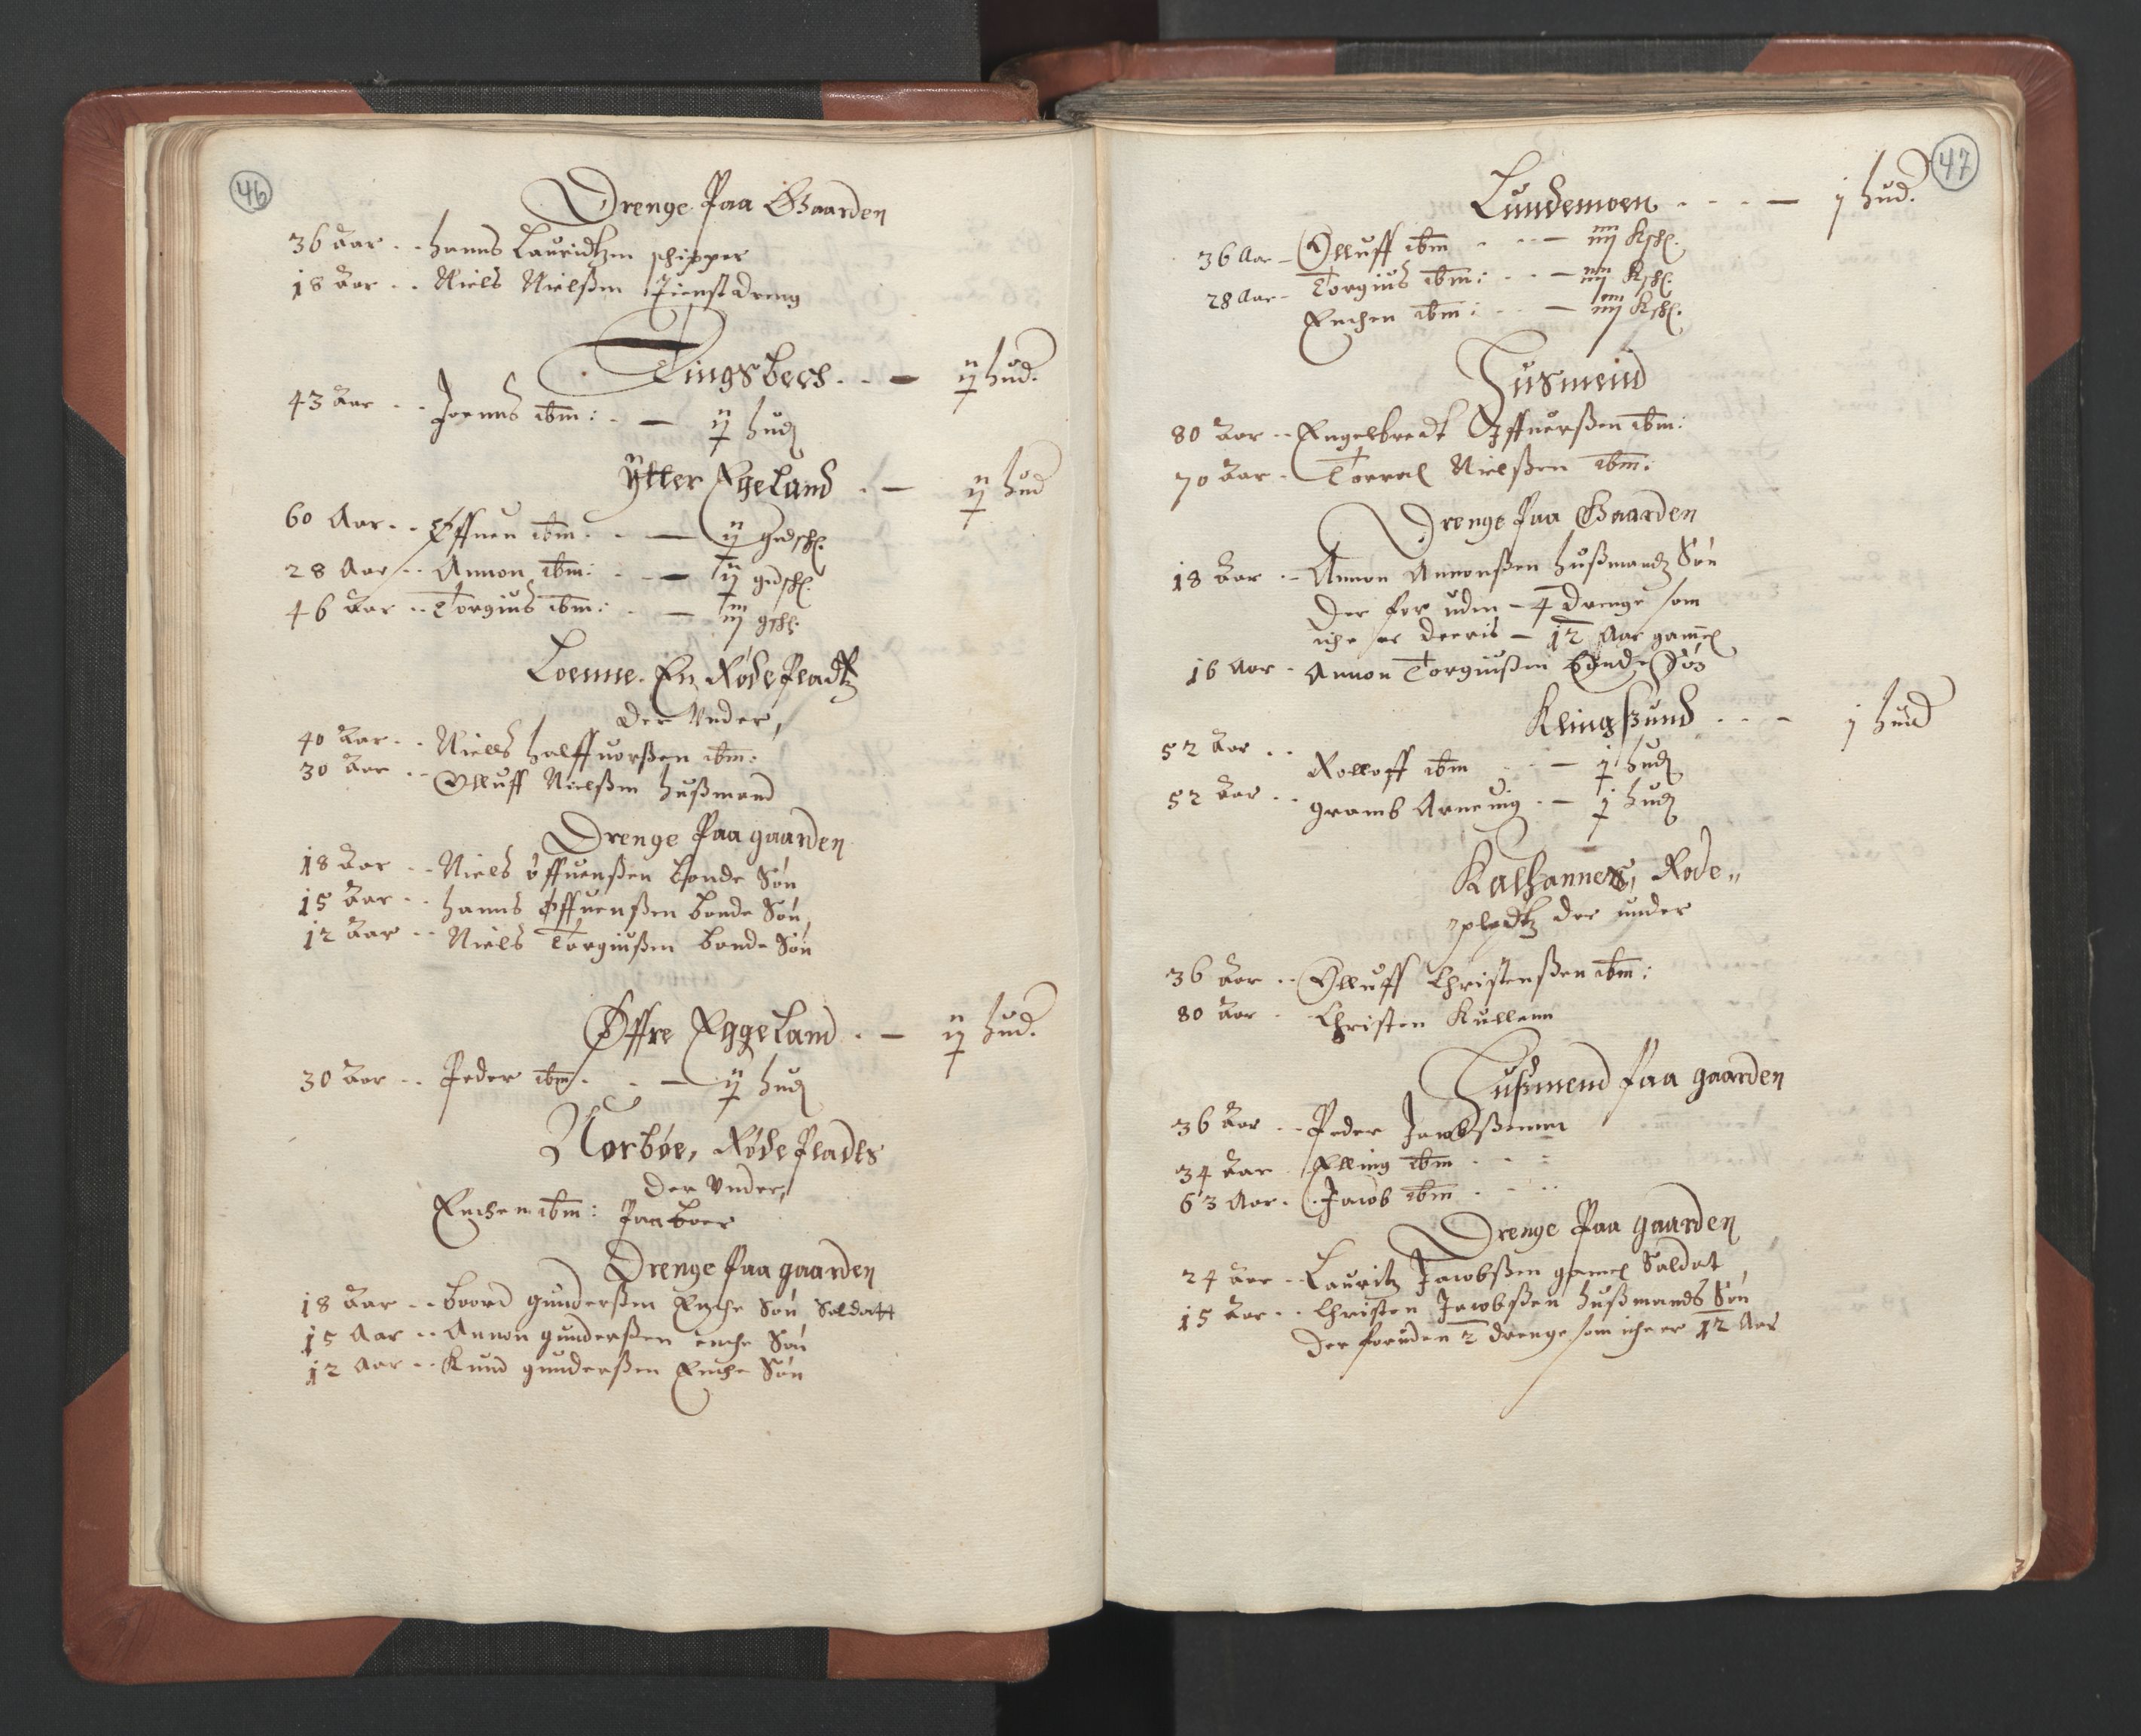 46
Drenge Paa Gaarden
36 Aar - - hanns Lauridtzen schipper
18 Aar - - Niels Nielßen Tienstdreng
Tingsbech . . - ij hud.
43 Aar - - Joenns ibm: . - ij hud
Ytter Egeland . - ij hud
60 Aar - - Øffuen ibm . . - ij gedsch.
28 Aar - - Annon ibm: . . - ij gedsch.
46 Aar - - Torgius ibm: . - iij gsch:
Loenne. En Röde Pladtz
der Vnder,
40 Aar - - Niells halffuorßen ibm:
30 Aar - - Olluff Nielßen hußmand
Drenge Paa gaarden
18 Aar - - Niels Øffuenßen bonde Søn
15 Aar - - hanns Øffuenßen bonde Søn
12 Aar - - Niels Torgiußen bonde Søn
Øffre Eggeland . - ij hud.
30 Aar - - Peder ibm . . - ij hud
Norbøe, Röde Pladts
der Vnder,
Enchen ibm: Paa boer
Drenge Paa gaarden
18 Aar - - boord gunderßen Enche Søn, Soldatt
15 Aar - - Annon gunderßen enche Søn
12 Aar - - Knud gunderßen Enche Søn
47
Lundemoen . . . - j hud.
36 Aar - Olluff ibm . . - iiij Ksch.
28 Aar - Torgius ibm: . . - iiij Ksch.
Enchen ibm: . . - iiij Ksch.
Husmend
80 Aar - - Engelbredt Øffuerßen ibm:
70 Aar - Torvel Nielßen ibm:
Drenge Paa Gaarden
18 Aar - - Annon Annonßen hußmandz Søn
der for uden - 4 drenge som
iche er deeris - 12 Aar gamel
16 Aar - Annon Torgiußen bonde Søn
Klingsund . . - j hud
52 Aar - - Rolloff ibm . . - j hud
52 Aar - - gramb Arneuig . - j hud
Kalhannes, Rode„
pledtz der under
36 Aar - - Olluff Christenßen ibm:
80 Aar - Christen Kullenn
Hußmend Paa gaarden
36 Aar - - Peder Jacobßenn
34 Aar Elling ibm . . -
63 Aar - Jacob ibm . - -
Drenge Paa gaarden
24 Aar - Lauritz Jacobßen gamel Saldat
15 Aar - - Christen Jacobßen hußmands Søn
der foruden 2 drenge som iche er 12 Aar